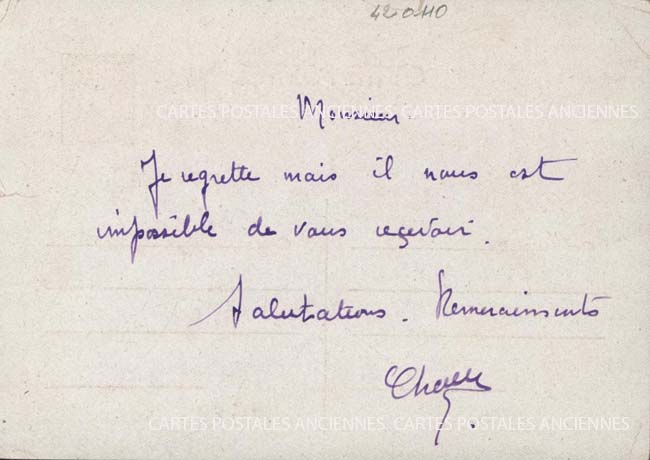 42-0110
Monsieur.
Je regrette mais il nous est
impossible de vous reçevoir.
Salutations. Remerciements
CARTES POSTALES ANCIENNES CARTES POSTALES ANCIENNES
CARTES POSTALES ANCIENNES CARTES POSTALES ANCIENNES